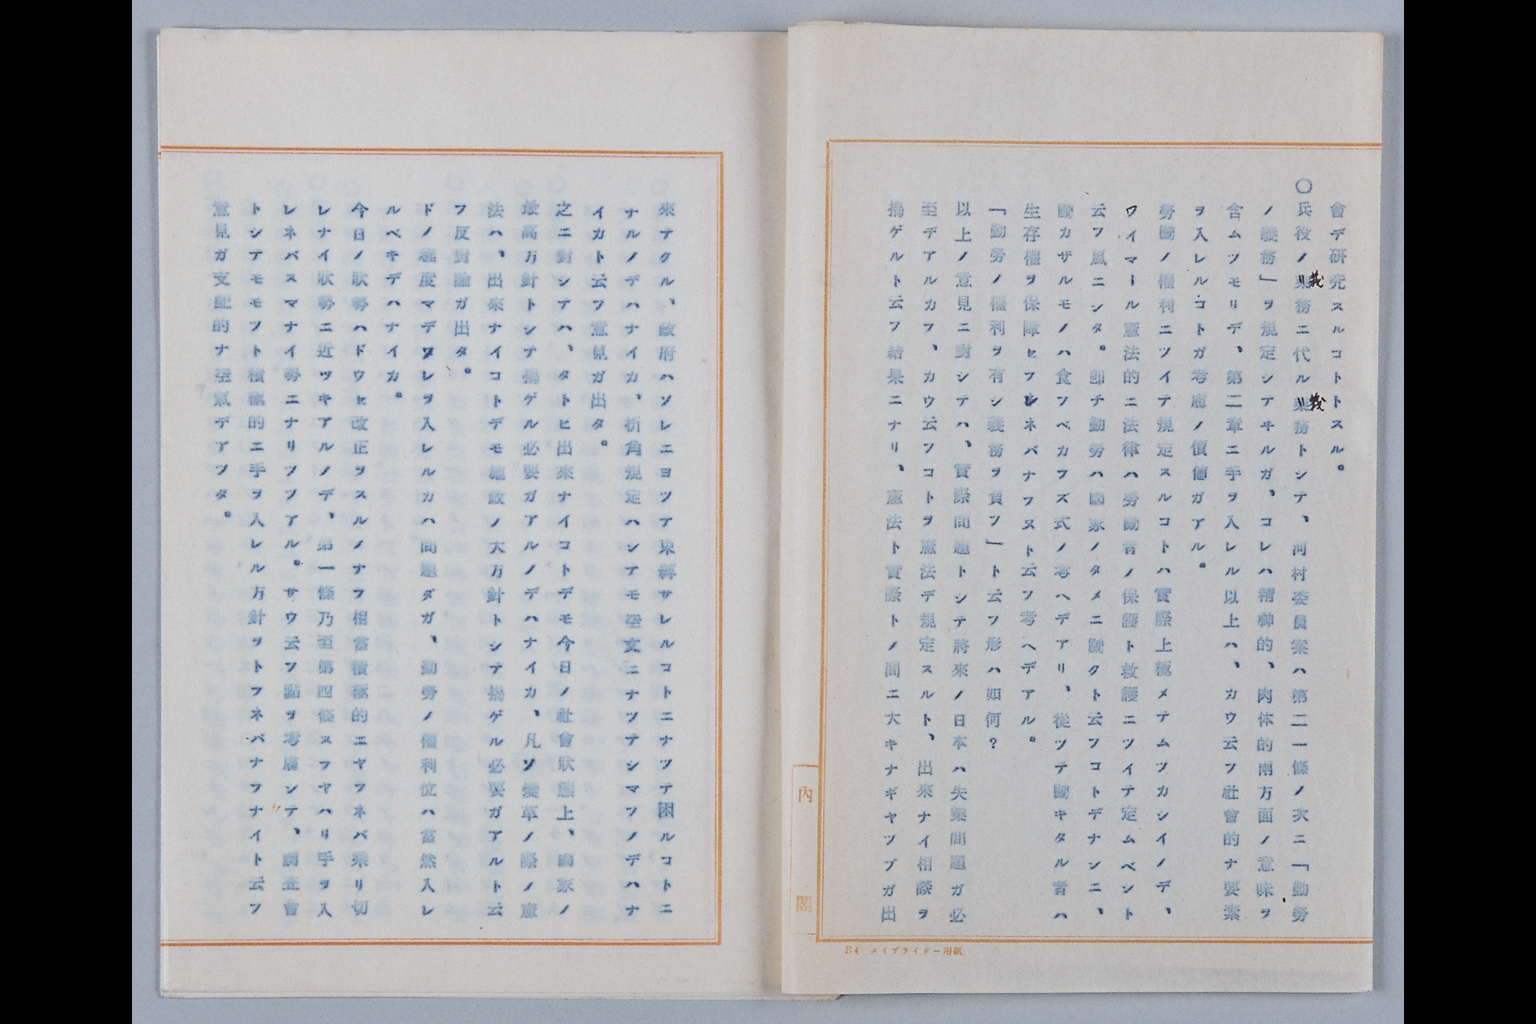 會デ研究スルコトトスル。
○兵役ノ義務ニ代ル義務トシテ、河村委員案ハ第二一條ノ次ニ「勤勞
ノ義務」ヲ規定シテヰルガ、コレハ精神的、肉体的兩方面ノ意味ヲ
含ムツモリデ、第二章ニ手ヲ入レル以上ハ、カウ云フ社會的ナ要素
ヲ入レルコトガ考慮ノ價値ガアル。
勞働ノ權利ニツイテ規定スルコトハ實際上極メテムツカシイノデ、
ワイマール憲法的ニ法律ハ勞働者ノ保護ト救護ニツイテ定ムベシト
云フ風ニシタ。卽チ勤勞ハ國家ノタメニ働クト云フコトデナシニ、
働カザルモノハ食フベカラズ式ノ考ヘデアリ、從ツテ働キタル者ハ
生存權ヲ保障セラレネバナラヌト云フ考ヘデアル。
「勤勞ノ權利ヲ有シ義務ヲ負フ」ト云フ形ハ如何?
以上ノ意見ニ對シテハ、實際問題トシテ將來ノ日本ハ失業問題ガ必
至デアルカラ、カウ云フコトヲ憲法デ規定スルト、出來ナイ相談ヲ
揭ゲルト云フ結果ニナリ、憲法ト實際トノ間ニ大キナギヤツプガ出
來テクル、政府ハソレニヨツテ束縛サレルコトニナツテ困ルコトニ
ナルノデハナイカ、折角規定ハシテモ空文ニナツテシマフノデハナ
イカト云フ意見ガ出タ。
之ニ對シテハ、タトヒ出來ナイコトデモ今日ノ社會狀態上、國家ノ
最高方針トシテ揭ゲル必要ガアルノデハナイカ、凡ソ變革ノ際ノ憲
法ハ、出來ナイコトデモ施政ノ大方針トシテ揭ゲル必要ガアルト云
フ反對論ガ出タ。
ドノ程度マデワレヲ入レルカハ問題ダガ、勤勞ノ權利位ハ當然入レ
ルベキデハナイカ。
今日ノ狀勢ハドウセ改正ヲスルノナラ相當積極的ニヤラネバ乘リ切
レナイ狀勢ニ近ヅキアルノデ、第一條乃至第四條スラヤハリ手ヲ入
レネバスマナイ勢ニナリツツアル。サウ云フ點ヲ考慮シテ、調査會
トシテモモツト積極的ニ手ヲ入レル方針ヲトラネバナラナイト云フ
意見ガ支配的ナ空氣デアツタ。
內閣
B4 タイプライター用紙